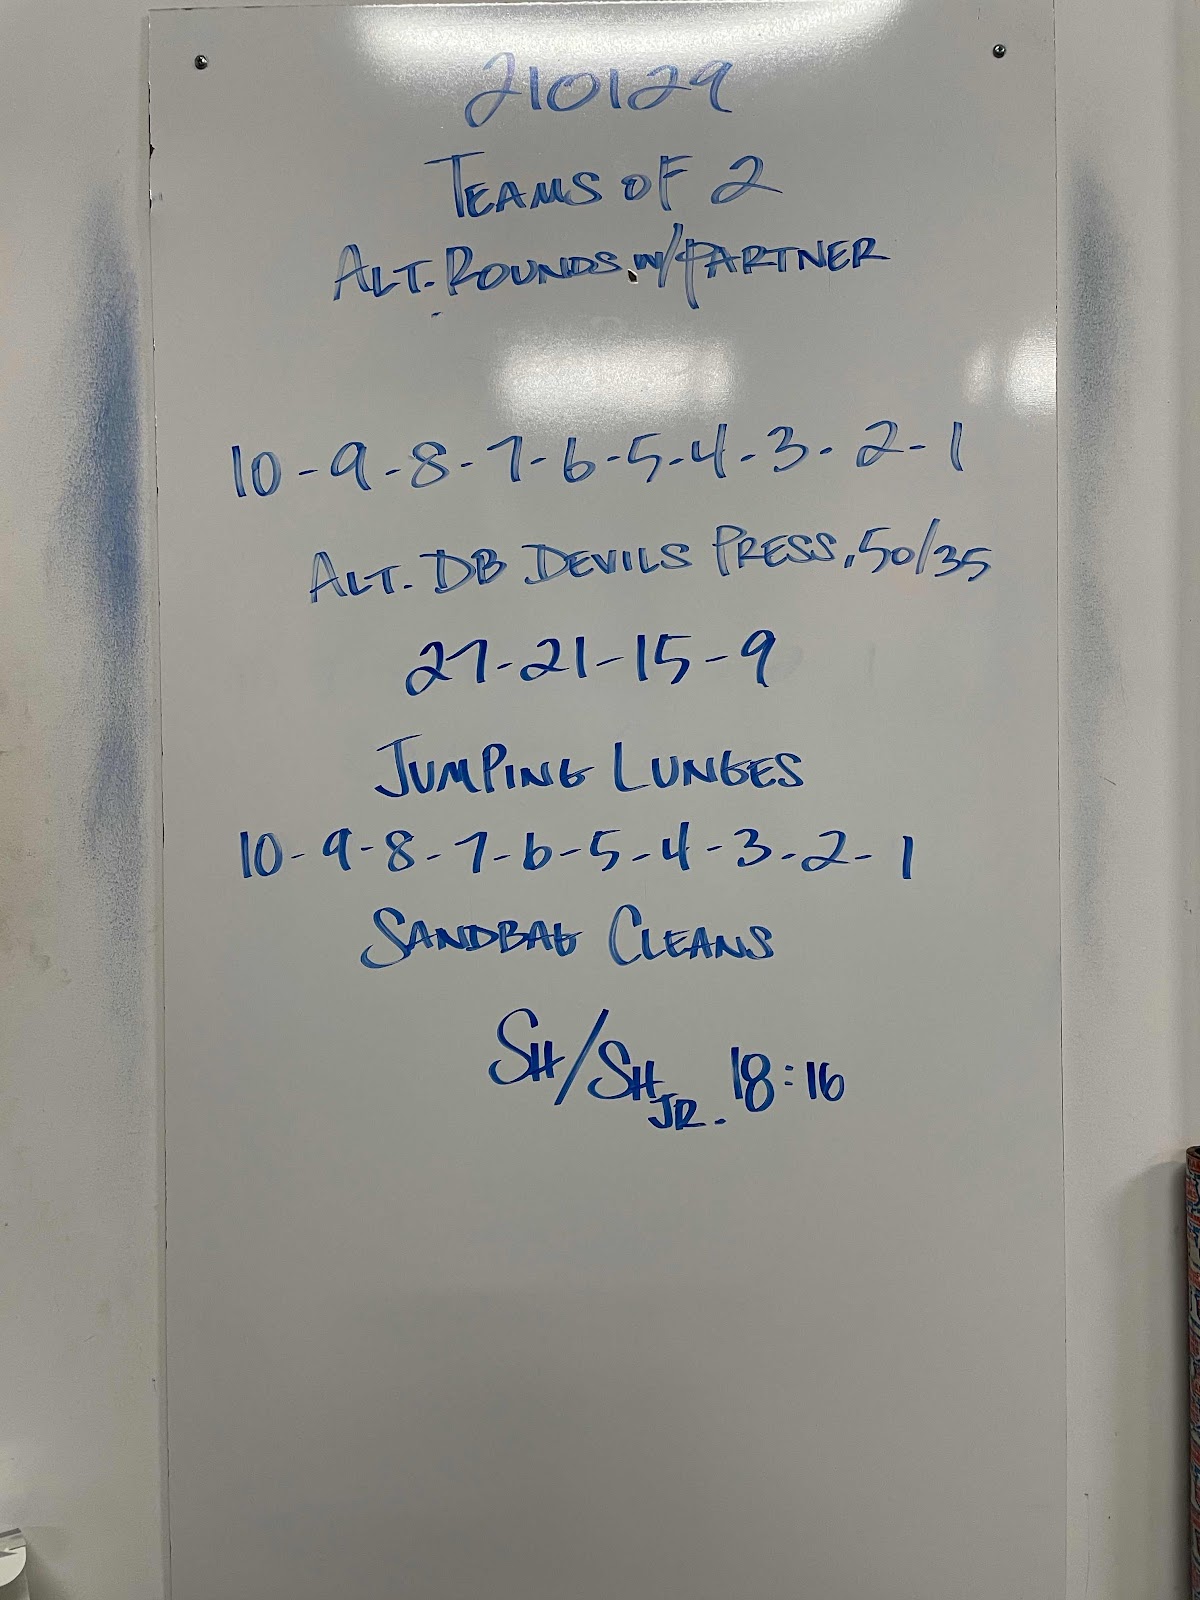 210129
TEAMS OF 2
ALT. ROUNDS w/PARTNER
10-9-8-7-6-5-4-3-2-1
ALT. DB DEVILS PRESS, 50/35
27-21-15-9
JUMPING LUNGES
10-9-8-7-6-5-4-3-2-1
SANDBAG CLEANS
SH/SH JR. 18:16